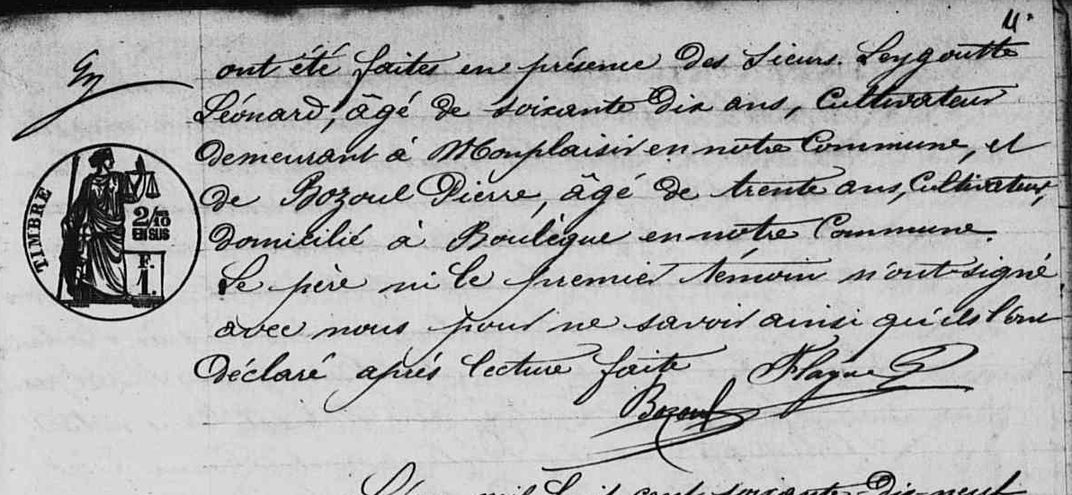 4.
ont été faites en présence des sieurs Leygoutte
Léonard, âgé de soixante dix ans, Cultivateur
demeurant à Monplaisir en notre Commune, et
de Bozoul Pierre, âgé de trente ans, Cultivateur,
domicilié à Boulègue en notre Commune.
Le père ni le premier témoin n'ont signé
avec nous pour ne savoir ainsi qu'ils l'ont
déclaré après lecture faite
Bozoul
TIMBRE
2/10
EN SUS
F.
1.
L'an mil huit cent soixante-dix-neuf